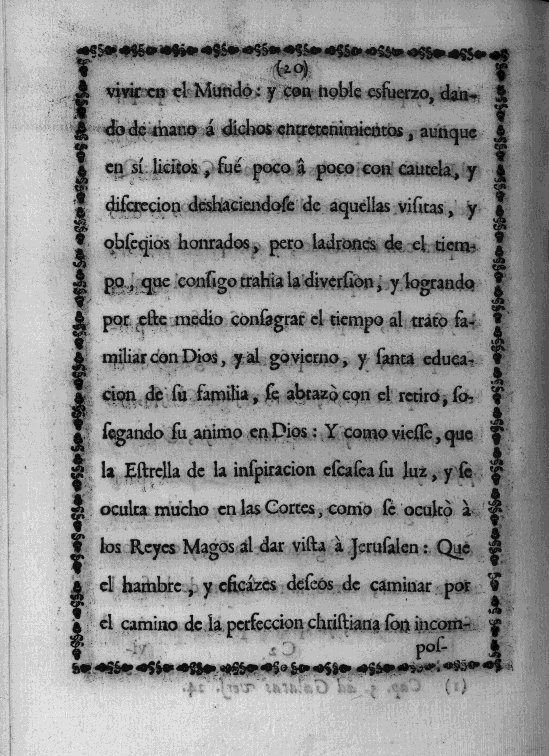 (20)
vivir en el Mundo: y con noble esfuerzo, dan-
do de mano á dichos entretenimientos, aunque
en sí licitos, fué poco â poco con cautela, y
discrecion deshaciendose de aquellas visitas, y
obseqios honrados, pero ladrones de el tiem-
po, que consigo trahia la diversion, y logrando
por este medio consagrar el tiempo al trato fa-
miliar con Dios, y al govierno, y santa educa-
cion de su familia, se abrazò con el retiro, so-
segando su animo en Dios: Y como viesse, que
la Estrella de la inspiracion escasea su luz, y se
oculta mucho en las Cortes, como se ocultò à
los Reyes Magos al dar vista à Jerusalen: Que
el hambre, y eficázes deseos de caminar por
el camino de la perfeccion christiana son incom-
pos-